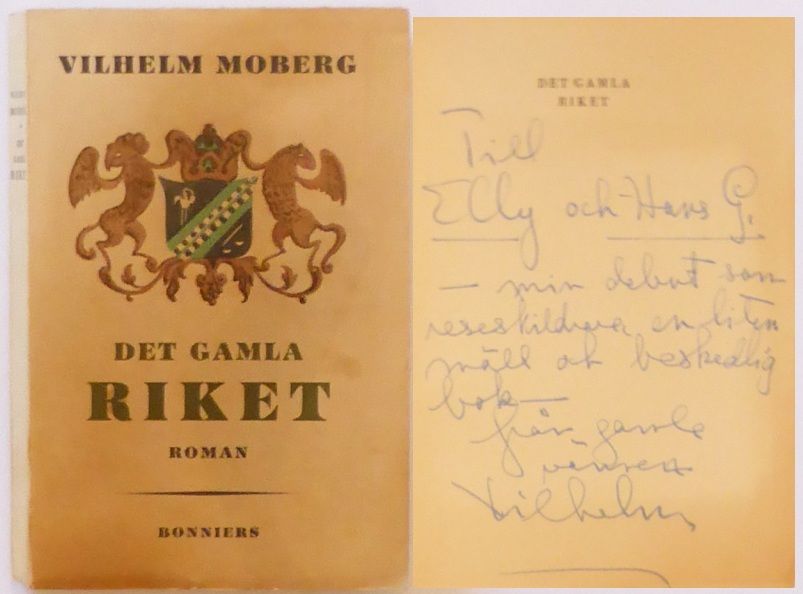 VILHELM MOBERG
DET GAMLA
RIKET
ROMAN
BONNIERS
DET GAMLA
RIKET
Till
Elly och Hans G.
— min debut som
reseskildrare, en liten
snäll och beskedlig
bok —
från gamle
vännen
Vilhelm